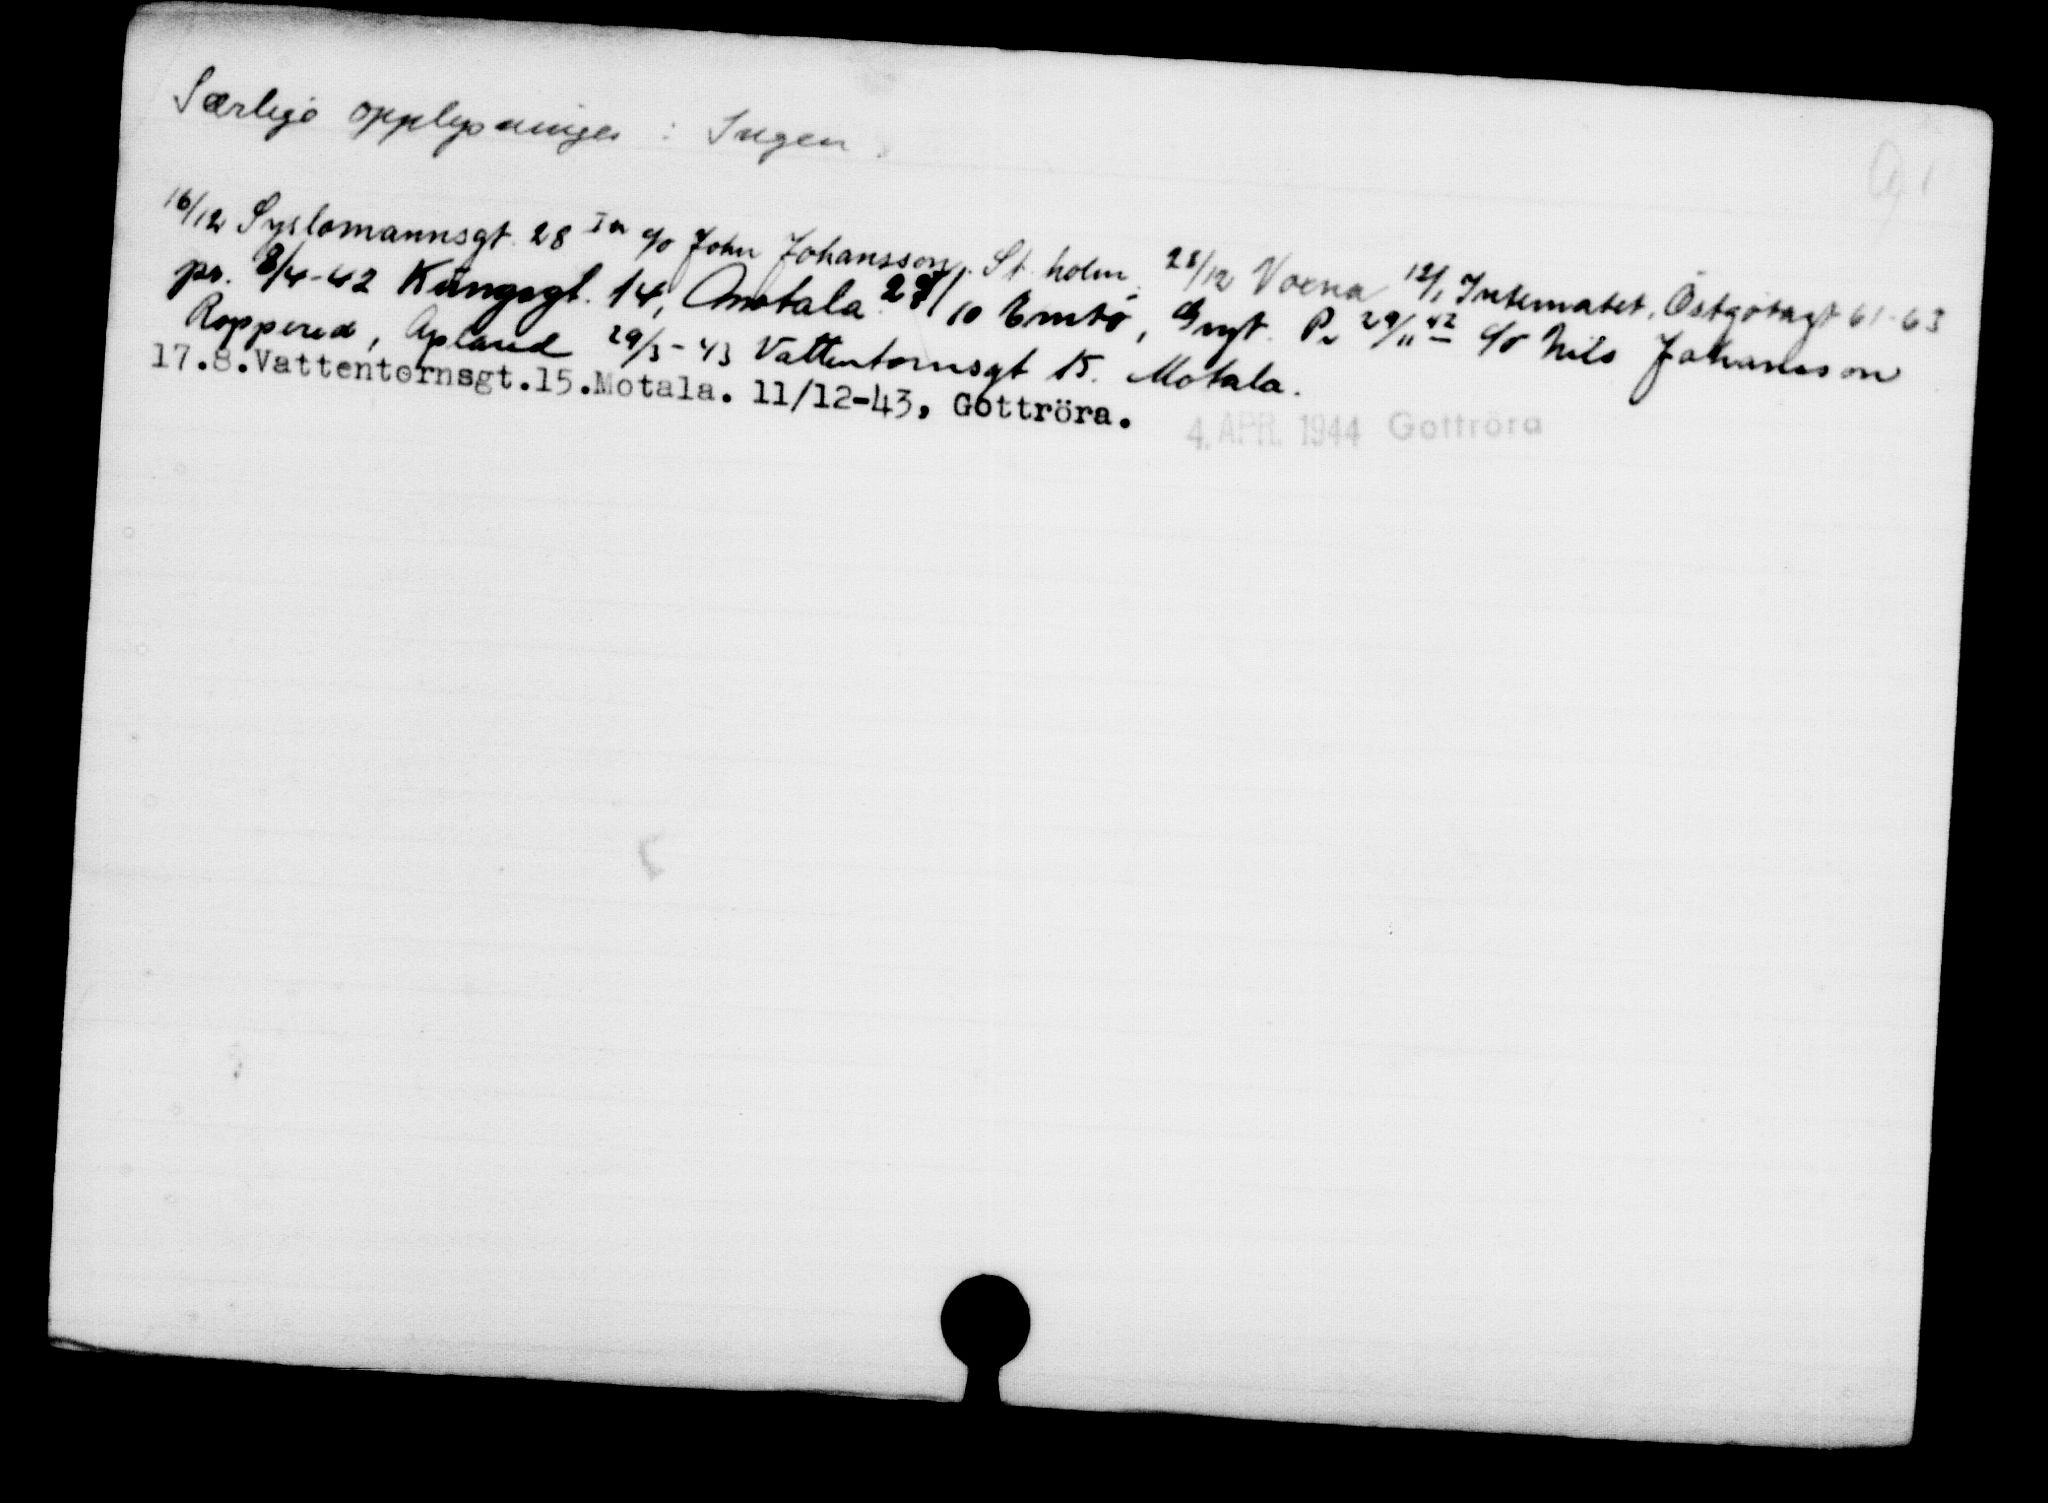 Særlige opplysninger : Ingen.
16/12 Syslomannsgt. 28 I n c/o John Johansson. St. holm. 28/12 Voxna 12/1 Internatet, Östgötagt 61-63
pr. 8/4-42 Kungsgt. 14, Motala. 29/10 Emtö, Gryt. Pr 29/11 42 c/o Nils Johansson
Roppered, Apland 29/3-43 Vattentornsgt 15. Motala.
17.8.Vattentornsgt.15.Motala. 11/12-43, Gottröra.
4. APR. 1944 Gottröra